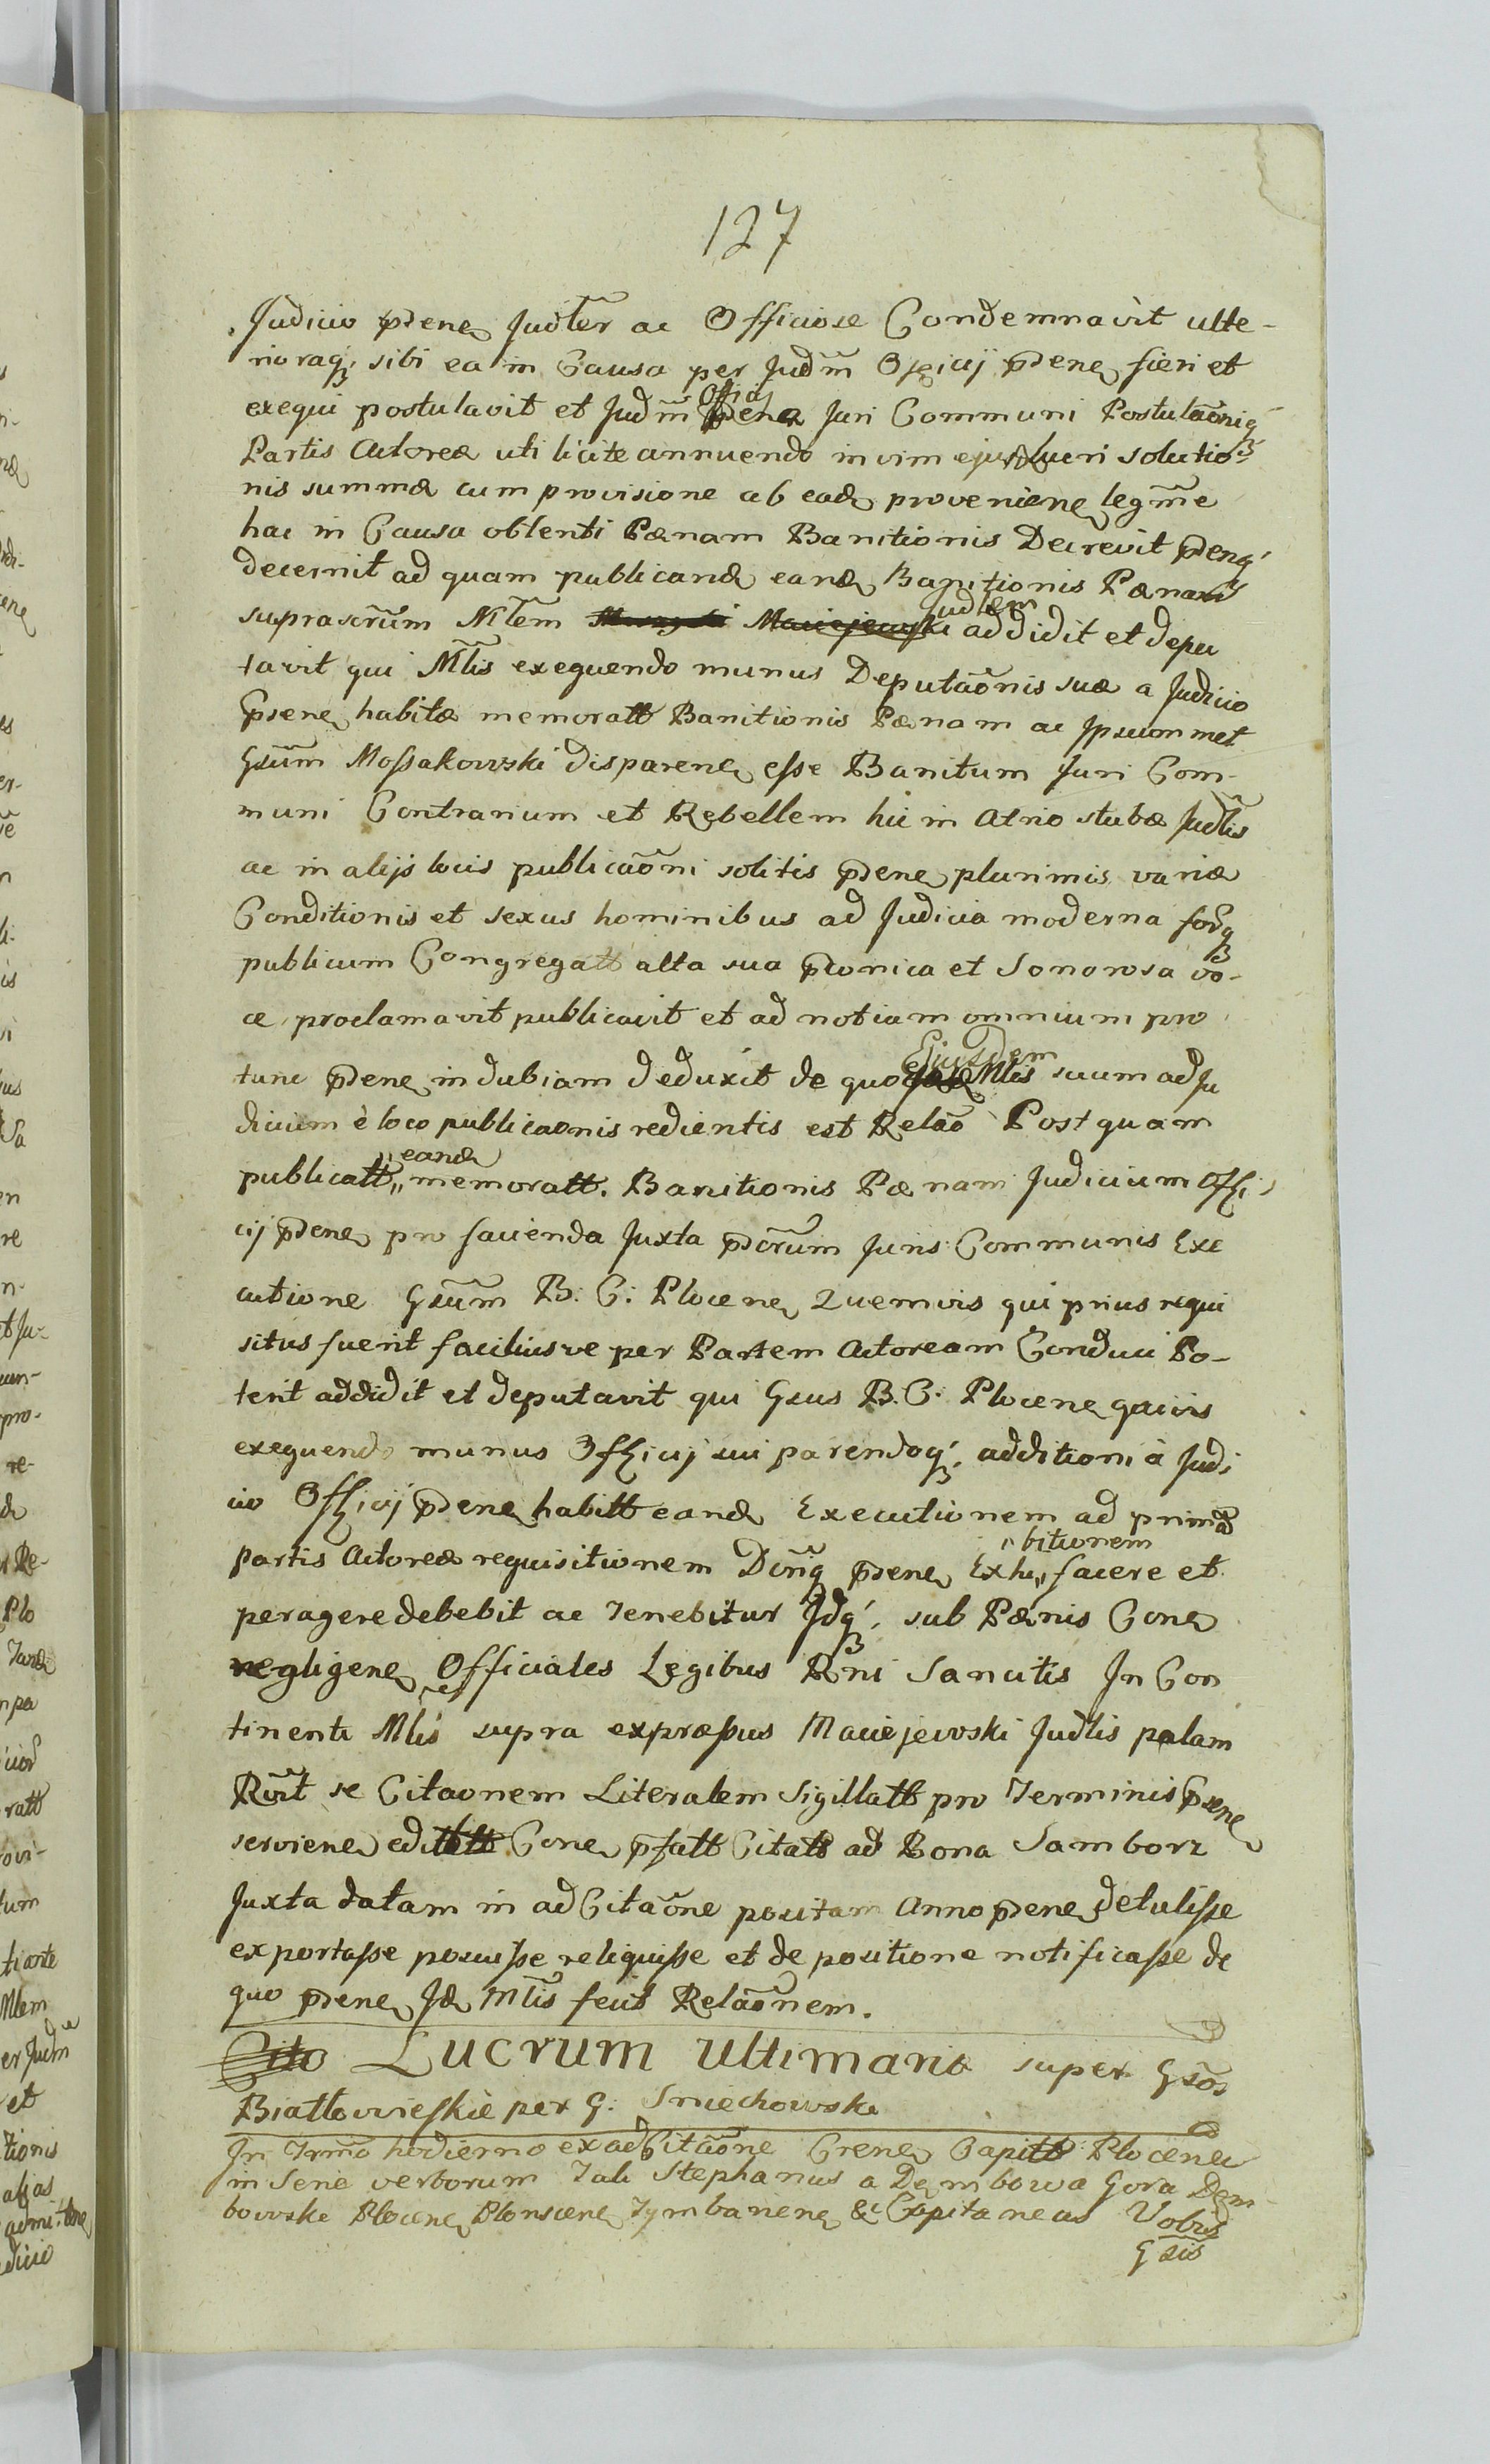 127
Judicio pdene Judler ac Officiose Condemnavit ulte-
rioraq; sibi ea in Causa per Judm Officij pdene fieri et
exequi postulavit et Judm Offici pdene Juri Communi Postulaoniq;
Partis Actoreæ uti licite annuendo in vim ejusd lucri solutio-
nis summæ cum provisione ab eade proveniene legme
hac in Causa obtenti Pænam Banitionis Decrevit pdenq;
decernit ad quam publicand eand Banitionis Pænam
suprascrum Mlem Maciejewski Judlem addidit et depu
tavit qui Mlis exequendo munus Deputaonis suæ a Judicio
psene habitæ memoratt Banitionis Pænam ac Ipsummet
Gsum Mossakowski disparene esse Banitum Juri Com-
muni Contrarium et Rebellem hic in Atrio stubæ Judlis
ac in alijs locis publicaoni solitis pdene plurimis variæ
Conditionis et sexus hominibus ad Judicia moderna forq;
publicum Congregatt alta sua pconica et Sonorosa vo-
ce proclamavit publicavit et ad notiam omnium pro
tunc pdene indubiam deduxit de quo Ejusdem Mlis suum ad Ju
dicium è loco publicaonis redientis est Relao Post quam
publicatt,, eand memoratt. Banitionis Pænam Judicium Offi
cij pdene pro facienda Juxta pscrum Juris Communis Exe
cutione Gsum B: C: Plocene Quemvis qui prius requi
situs fuerit faciliusve per Partem Actoream Conduci Po-
terit addidit et deputavit qui Gsus B. C: Plocene quivis
exequendo munus Officij sui parendoq; additioni à Judi
cio Officij pdene habitt eand Executionem ad primã
partis Actoreæ requisitionem Donq pdene Exhi,, ,,bitionem facere et
peragere debebit ac Tenebitur Idq; sub Pænis Cone
negligene Officiales Legibus Rni Sancitis In Con
tinenti Mlis supra expræssus Maciejewski Judlis palam
Rvit se Citaonem Literalem Sigillatt pro Terminis psene
serviene edit Cone pfatt Citatt ad Bona Samborz
Juxta datam in adCitaone positam Anno pdene detulisse
exportasse posuisse reliquisse et de positione notificasse de
quo pdene Id Mlis fecit Relaonem.
Cito Lucrum ultimario super Gsos
Białłowieskie per G: Smiechowski
In Trmo hodierno ex adCitaone Crene Capitt: Plocene
in Serie verborum Tali Stephanus a Dembowa Gora Dem-
bowski Plocene Plonscene Tymbariene &c Capitaneus Vobis
Gsis